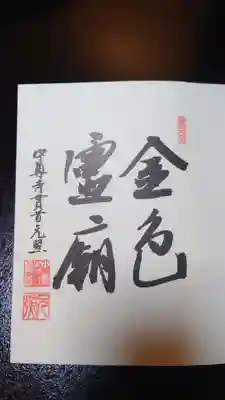 金色
霊廟
中尊寺貫首元照